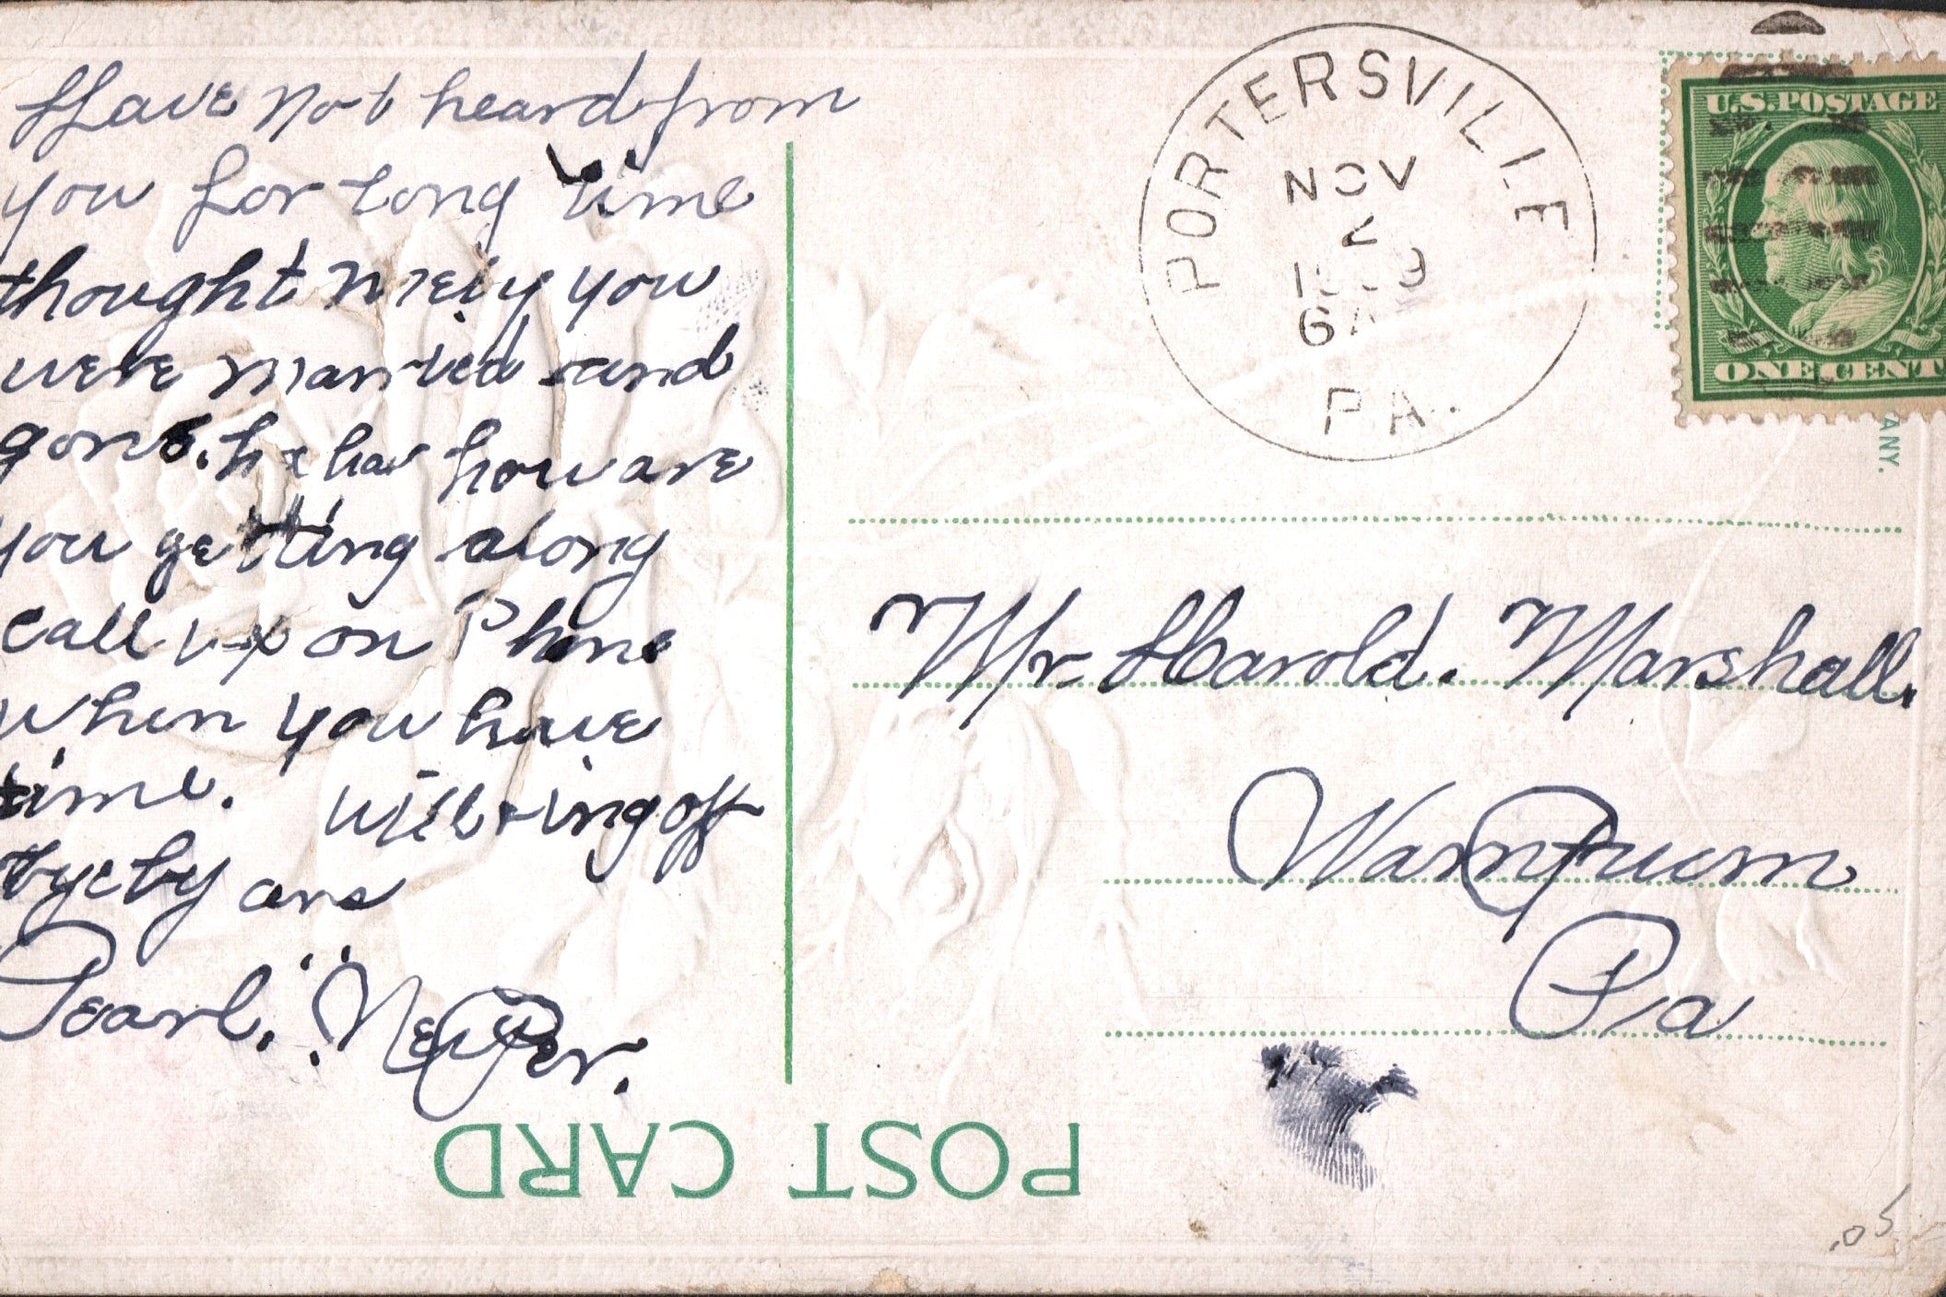 Have not heard from
you for long time
thought nieiy you
were married and
gone. ha ha how are
you getting along
call up on Phone
when you have
time. will ring off
bye by ans
Pearl. Neyper.
PORTERSVILLE
NOV
2
6A
PA.
U.S.POSTAGE
ONE CENT
ANY.
Mr Harold. Marshall.
Wampum
Pa
POST CARD
.05